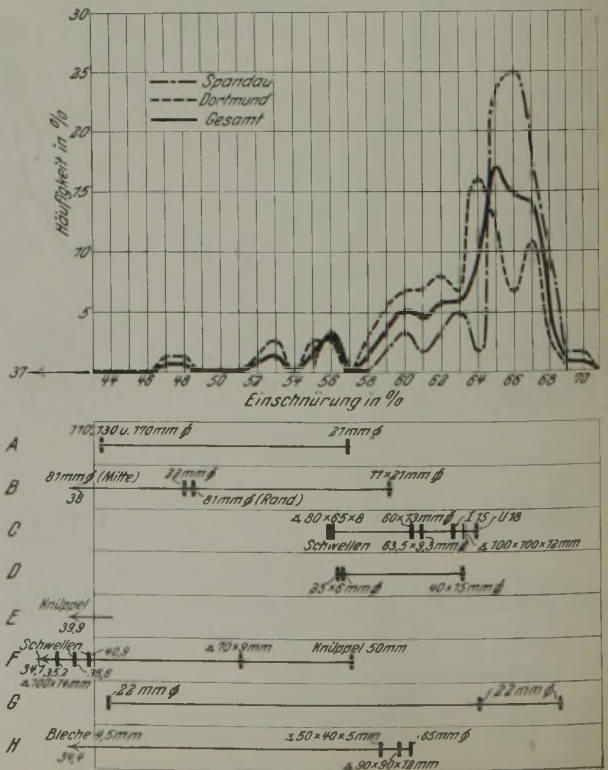 30
25
20
15
10
5
Häufigkeit in %
Spandau
Dortmund
Gesamt
37
44 46 48 50 52 54 56 58 60 62 64 66 68 70
Einschnürung in %
A 110, 130 u. 170mm ϕ 21mm ϕ
B 81mm ϕ (Mitte) 22mm ϕ 11×21mm ϕ
38 81mm ϕ (Rand)
C 80×65×8 60×13mm I 15 U 18
Schwellen 63,5×9,3mm 100×100×12mm
D
25×6mm 40×15mm
E Knüppel
39,9
F Schwellen 40,9 70×9mm Knüppel 50mm
34,7 35,2 36,6
100×14mm
G 22mm ϕ 22mm ϕ
H Bleche 4,5mm 50×40×5mm 65mm ϕ
34,4 90×90×12mm